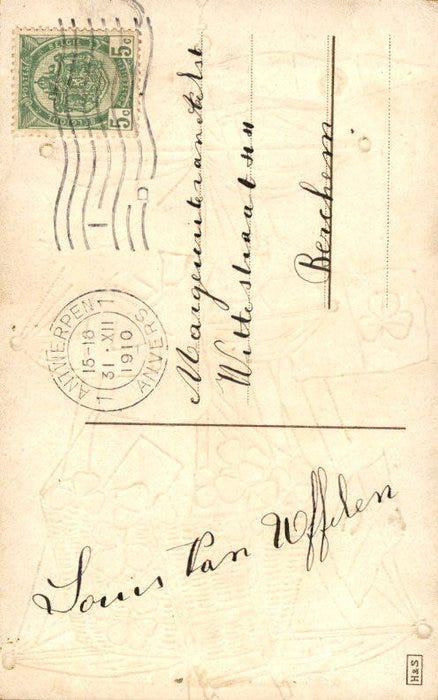 POSTES BELGIQUE
5c 5c
ANTWERPEN 1
15-16
31·XII
1910
1 ANVERS
Margerieter van Aelst
Wittestraat
Berchem
Louis Van Uffelen
H&S